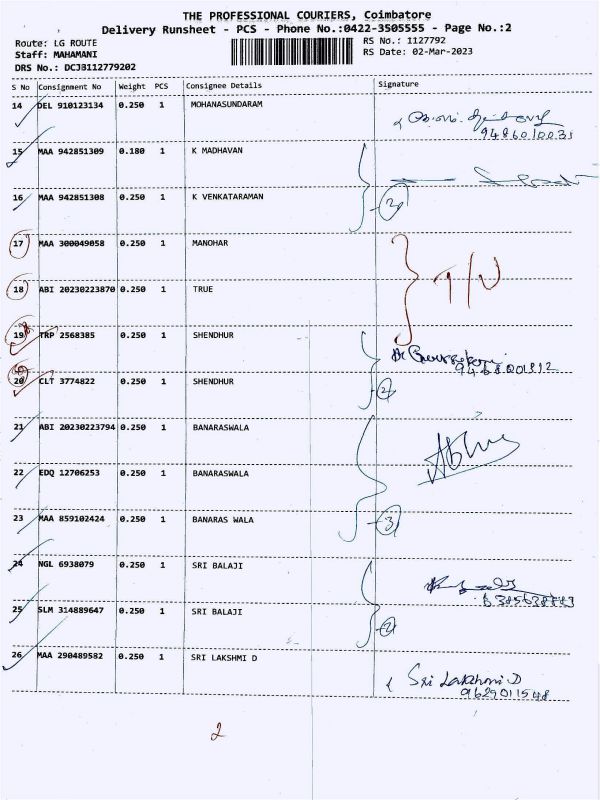 THE PROFESSIONAL COURIERS, Coimbatore
Delivery Runsheet - PCS - Phone No.:0422-3505555 - Page No.:2
Route: LG ROUTE
RS No.: 1127792
Staff: MAHAMANI
RS Date: 02-Mar-2023
DRS No.: DCJB112779202
S No Consignment No Weight PCS Consignee Details Signature
14 DEL 910123134 0.250 1 MOHANASUNDARAM
15 MAA 942851309 0.180 1 K MADHAVAN
16 MAA 942851308 0.250 1 K VENKATARAMAN
2
17 MAA 300049058 0.250 1 MANOHAR
18 ABI 20230223870 0.250 1 TRUE
19 TRP 2568385 0.250 1 SHENDHUR
20 CLT 3774822 0.250 1 SHENDHUR
2
21 ABI 20230223794 0.250 1 BANARASWALA
22 EDQ 12706253 0.250 1 BANARASWALA
23 MAA 859102424 0.250 1 BANARAS WALA
3
24 NGL 6938079 0.250 1 SRI BALAJI
25 SLM 314889647 0.250 1 SRI BALAJI
2
26 MAA 290489582 0.250 1 SRI LAKSHMI D
Sri Lakshmi D
9629011548
2